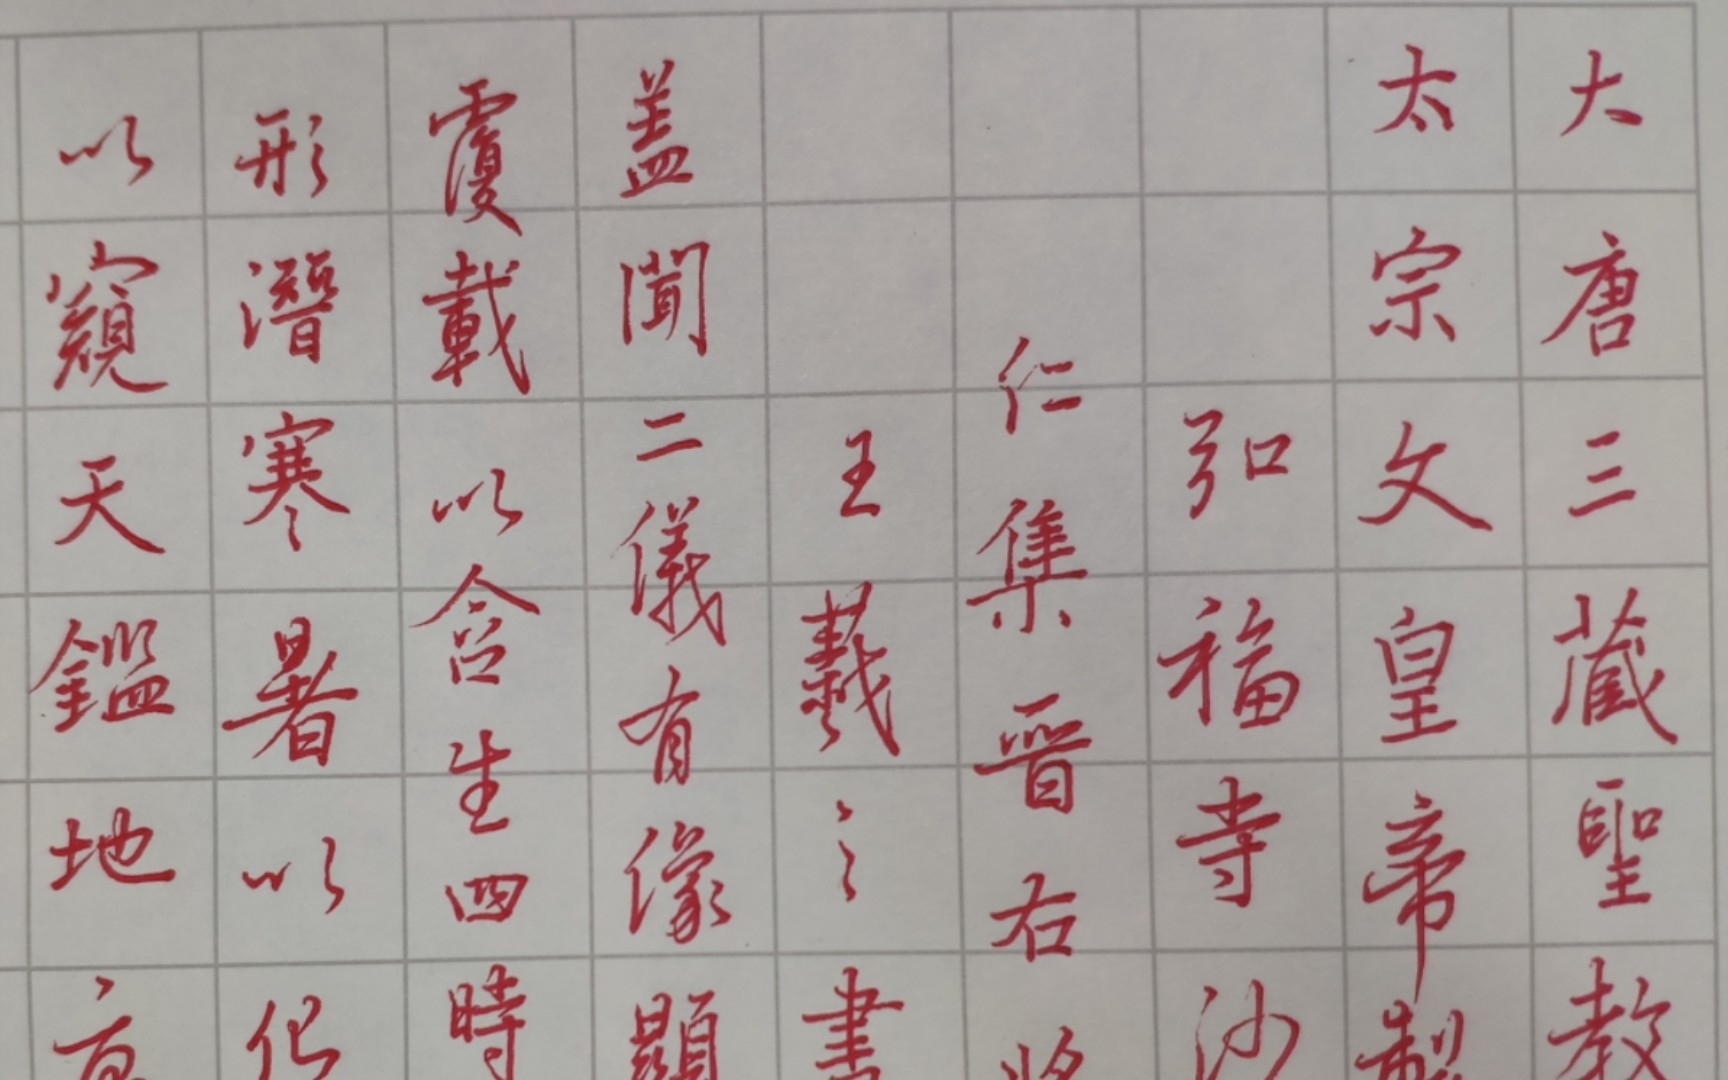 大唐三藏聖教
太宗文皇帝製
弘福寺沙
仁集晋右将
王羲之書
盖聞二儀有像顯
覆載以含生四時
形潛寒暑以化
以窺天鑑地